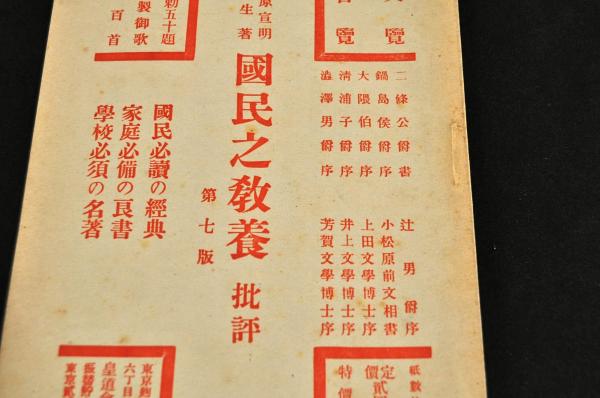 覽
覽
二條公爵書
鍋島侯爵序
大隈伯爵序
清浦子爵序
澁澤男爵序
辻男爵序
小松原前文相書
上田文學博士序
井上文學博士序
芳賀文學博士序
原宣明
生著
國民之敎養 批評
第七版
勅五十題
製御歌
百首
國民必讀の經典
家庭必備の良書
學校必須の名著
紙數
定價貳
特價
東京
六丁目
皇道會
振替
東京貳